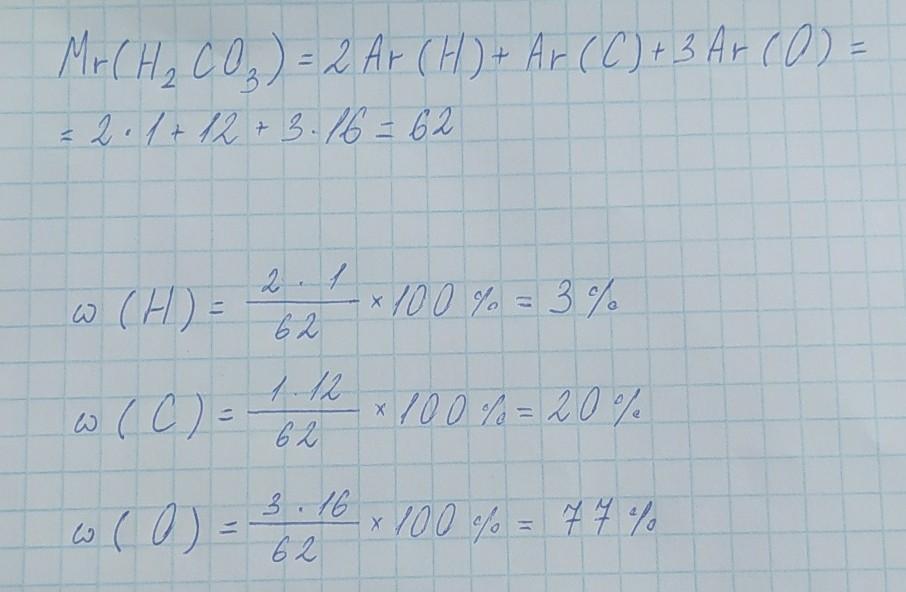 Mr(H₂CO₃) = 2Ar(H) + Ar(C) + 3Ar(O) =
= 2·1 + 12 + 3·16 = 62
ω(H) = (2·1)/62 × 100% = 3%
ω(C) = (1·12)/62 × 100% = 20%
ω(O) = (3·16)/62 × 100% = 77%